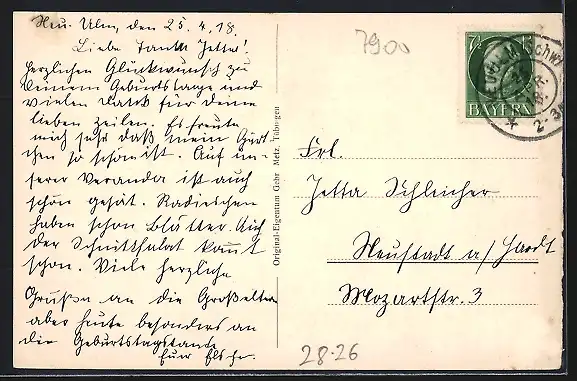 Neu-Ulm, den 25.4.18.
Liebe Tante Jetta!
Herzlichen Glückwunsch zu
Deinem Geburtstage und
vielen Dank für deine
lieben Zeilen. Es freute
mich sehr daß mein Gärt-
chen so schön ist. Auf un-
serer Veranda ist auch
schon gesät. Radieschen
haben schon Blätter. Auch
der Schnittsalat kommt
schon. Viele herzliche
Grüße an die Großeltern
aber heute besonders an
die Geburtstagstante
Eure
7900
7½
BAYERN
Frl.
Jetta Schleicher
Neustadt a/Haardt
Mozartstr. 3
28.26
Original-Eigentum Gebr Metz, Tübingen